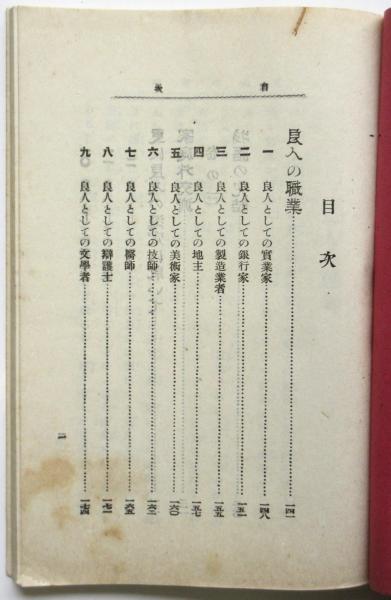 目次
目次
良人の職業……一四一
一 良人としての實業家……一四八
二 良人としての銀行家……一五一
三 良人としての製造業者……一五五
四 良人としての地主……一五七
五 良人としての美術家……一六〇
六 良人としての技師……一六三
七 良人としての醫師……一六五
八 良人としての辯護士……一七一
九 良人としての文學者……一七四